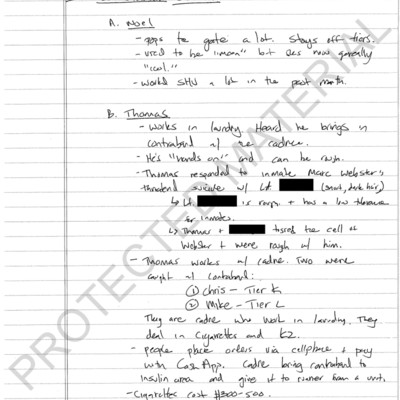 A. Noel
- pops the gate a lot. Stays off tiers.
- used to be "mean" but is now generally
"cool."
- Worked SHU a lot in the past month.
B. Thomas
- Works in laundry. Heard he brings in
contraband w/ the cadre.
- He's "hands on" and can be rough.
- Thomas responded to inmate Marc Webster's
threatened suicide w/ Lt. (short, dark hair)
↳ Lt. is rough + has a low tolerance
for inmates.
↳ Thomas + tossed the cell of
Webster + were rough w/ him.
- Thomas works w/ cadre. Two were
caught w/ contraband:
① Chris - Tier K
② Mike - Tier L
They are cadre who work in laundry. They
deal in cigarettes and K2.
- people place orders via cellphone + pay
with Cash App. Cadre bring contraband to
insulin area and give it to runner from a unit.
- Cigarettes cost $300-500.
PROTECTED MATERIAL